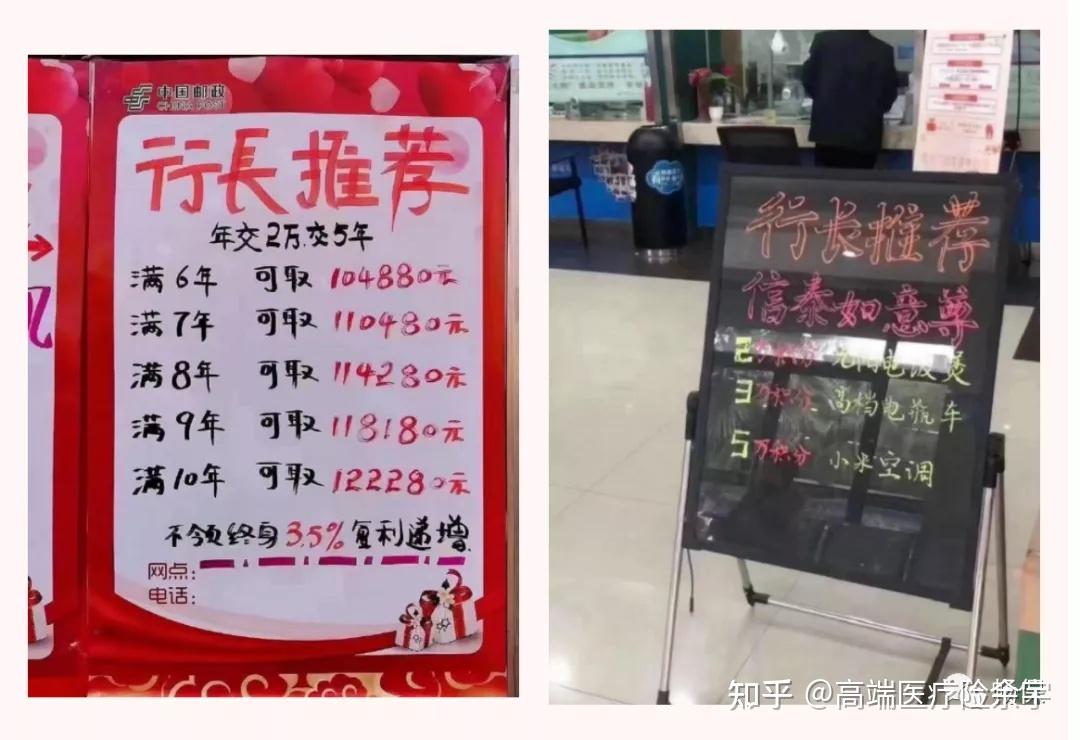 中国邮政
CHINA POST
行長推荐
年交2万.交5年
满6年 可取 104880元
满7年 可取 110480元
满8年 可取 114280元
满9年 可取 118180元
满10年 可取 122280元
不领终身3.5%复利递增
网点:
电话:
行长推荐
信泰如意尊
2万积分
3万积分 高档电瓶车
5万积分 小米空调
知乎 @高端医疗险